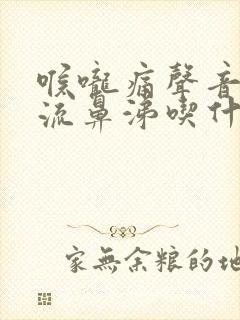 喉嚨痛聲音
流鼻涕喫什
家無余粮的地